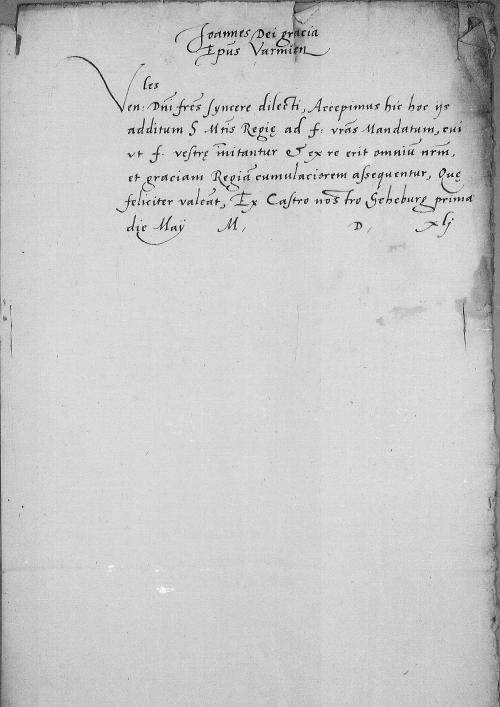 Joannes Dei gracia
Ep̄us Varmien
les
Ven: Dn̄i frēs syncere dilecti, Accepimus hic hoc ijs
additum S Mtis Regię ad f: vrās Mandatum, cui
vt f. vestrę in̄itantur & ex re erit omniū nr̄m,
et graciam Regiā cumulaciorem assequentur, Quę
feliciter valeāt, Ex Castro nostro Heheburg prima
die Maÿ M, D, xlj